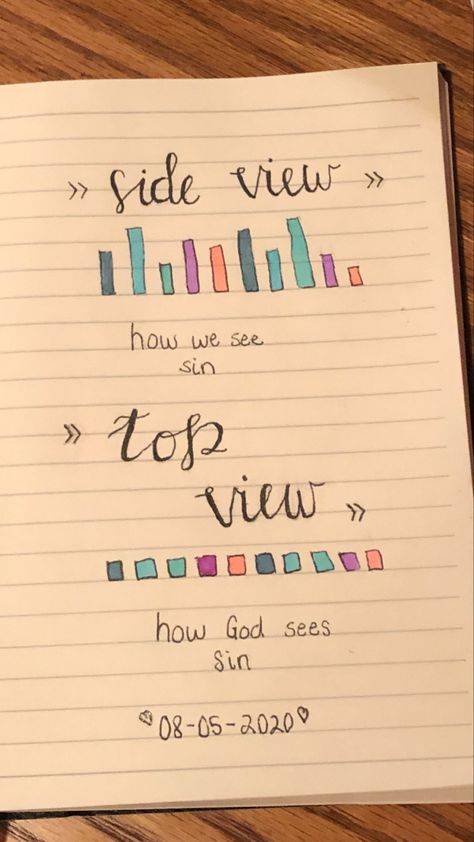 » side view »
how we see
sin
» top
view »
how God sees
sin
♡08-05-2020♡